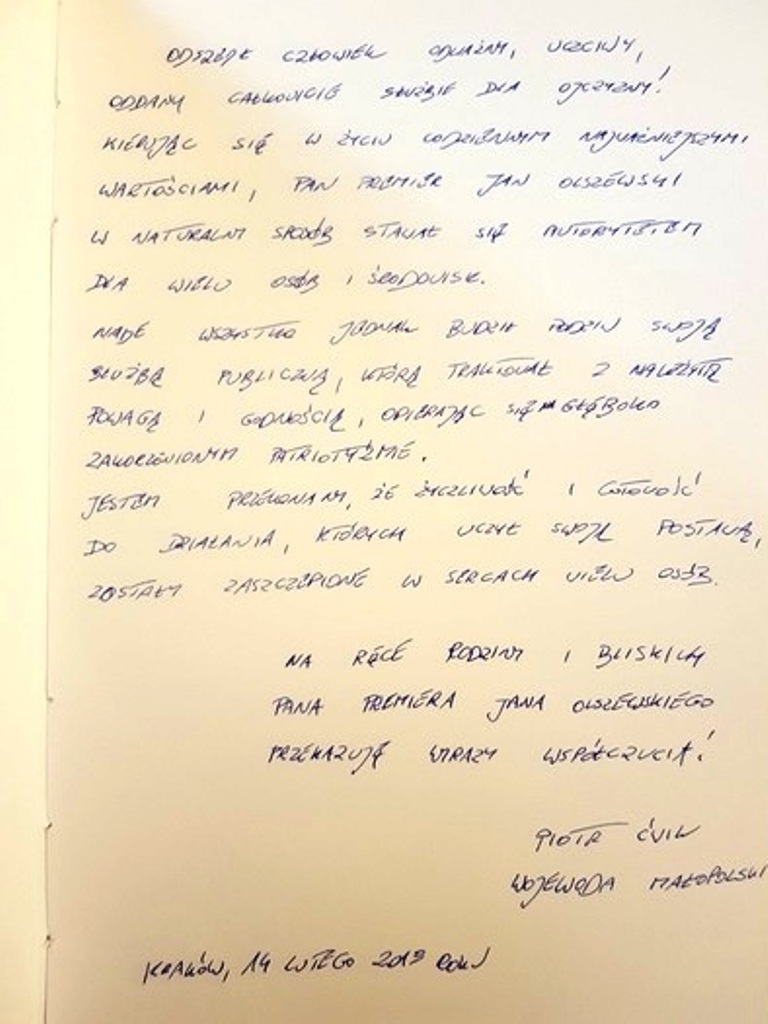 ODSZEDŁ CZŁOWIEK ODWAŻNY, UCZCIWY,
ODDANY CAŁKOWICIE SŁUŻBIE DLA OJCZYZNY!
KIERUJĄC SIĘ W ŻYCIU CODZIENNYM NAJWAŻNIEJSZYMI
WARTOŚCIAMI, PAN PREMIER JAN OLSZEWSKI
W NATURALNY SPOSÓB STAWAŁ SIĘ AUTORYTETEM
DLA WIELU OSÓB I ŚRODOWISK.
NADE WSZYSTKO JEDNAK BUDZIŁ PODZIW SWOJĄ
SŁUŻBĄ PUBLICZNĄ, KTÓRĄ TRAKTOWAŁ Z NALEŻYTĄ
POWAGĄ I GODNOŚCIĄ, OPIERAJĄC SIĘ NA GŁĘBOKO
ZAKORZENIONYM PATRIOTYZMIE.
JESTEM PRZEKONANY, ŻE ŻYCZLIWOŚĆ I GOTOWOŚĆ
DO DZIAŁANIA, KTÓRYCH UCZYŁ SWOJĄ POSTAWĄ,
ZOSTAŁY ZASZCZEPIONE W SERCACH WIELU OSÓB.
NA RĘCE RODZINY I BLISKICH
PANA PREMIERA JANA OLSZEWSKIEGO
PRZEKAZUJĘ WYRAZY WSPÓŁCZUCIA!
PIOTR ĆWIK
WOJEWODA MAŁOPOLSKI
KRAKÓW, 14 LUTEGO 2019 ROKU